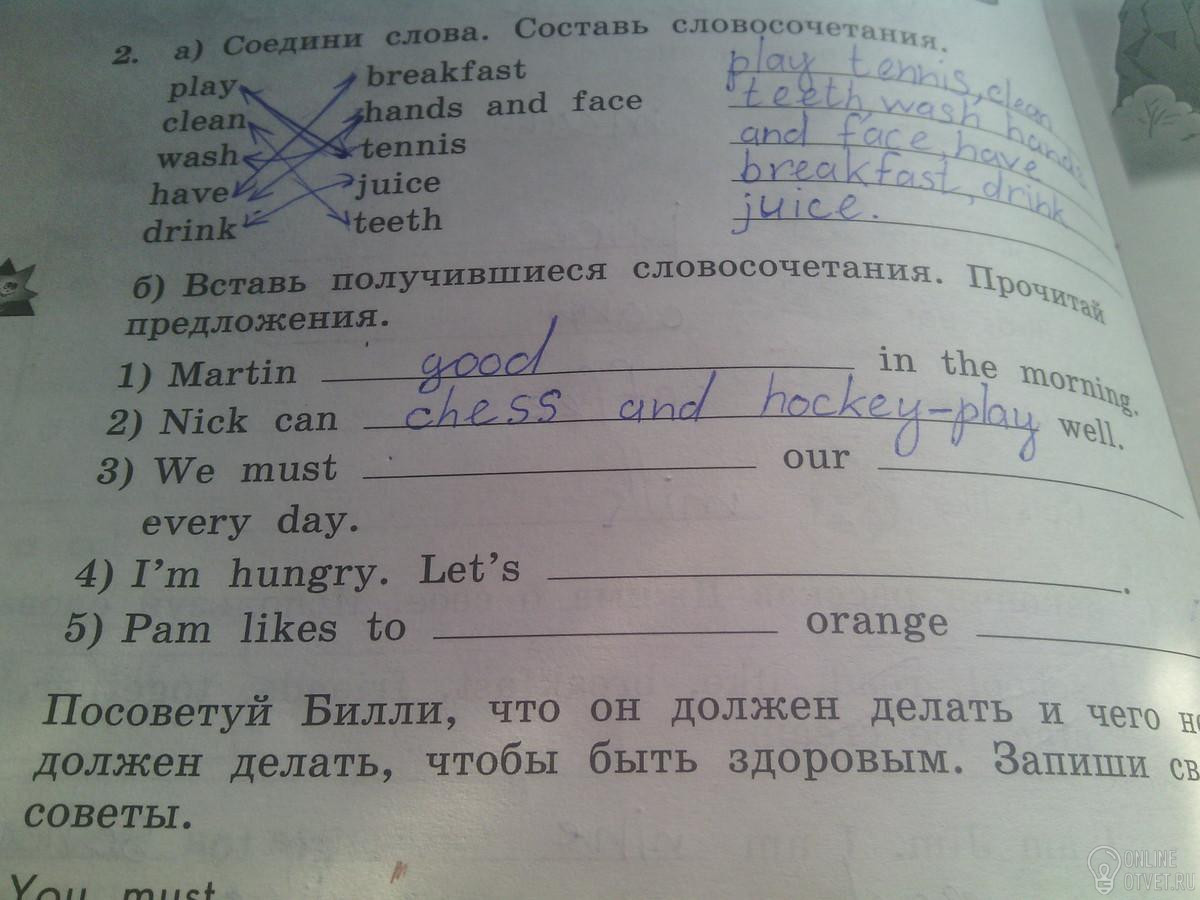 2. а) Соедини слова. Составь словосочетания.
play breakfast play tennis, clean
clean hands and face teeth, wash hands
wash tennis and face, have
have juice breakfast, drink
drink teeth juice.
б) Вставь получившиеся словосочетания. Прочитай
предложения.
1) Martin good in the morning.
2) Nick can chess and hockey-play well.
3) We must our
every day.
4) I'm hungry. Let's .
5) Pam likes to orange
Посоветуй Билли, что он должен делать и чего не
должен делать, чтобы быть здоровым. Запиши св
советы.
You must
ONLINE
OTVET.RU